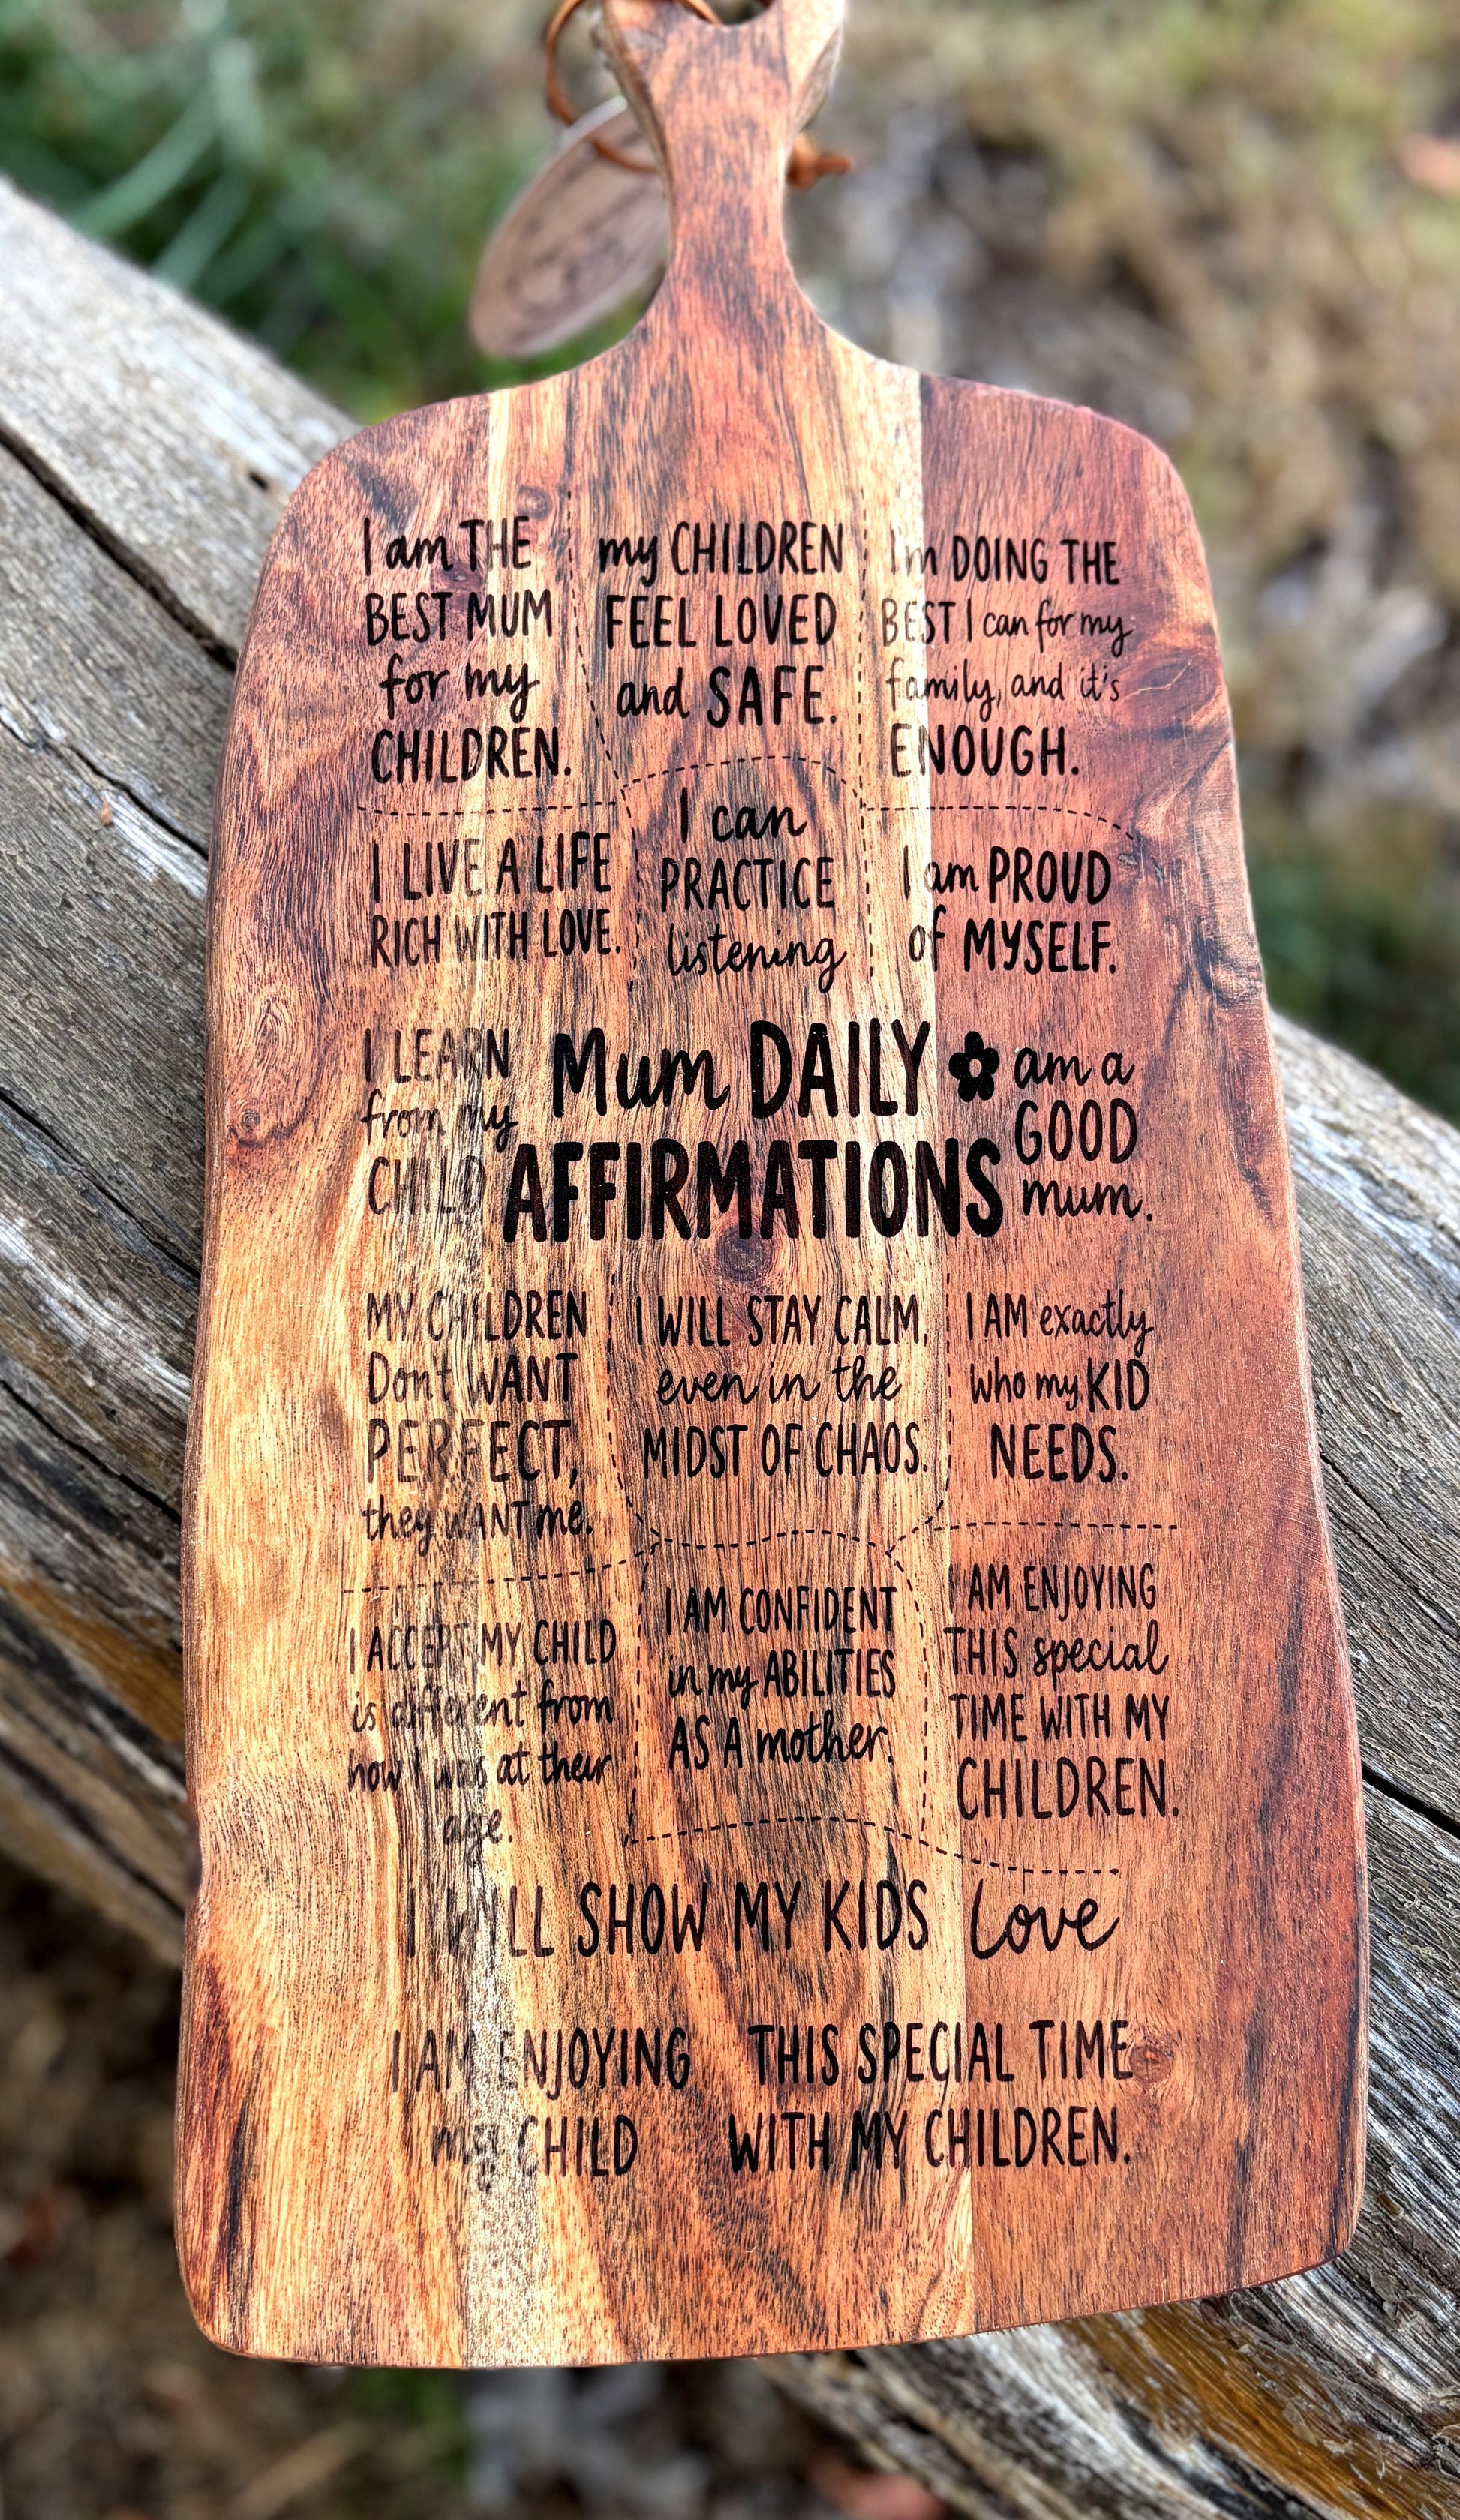 I am THE
BEST MUM
for my
CHILDREN.
my CHILDREN
FEEL LOVED
and SAFE.
I'm DOING THE
BEST I can for my
family, and it's
ENOUGH.
I LIVE A LIFE
RICH WITH LOVE.
I can
PRACTICE
listening
I am PROUD
of MYSELF.
I LEARN
from my
CHILD
Mum DAILY
AFFIRMATIONS
am a
GOOD
mum.
MY CHILDREN
Dont WANT
PERFECT,
they WANT me.
I WILL STAY CALM,
even in the
MIDST OF CHAOS.
I AM exactly
who my KID
NEEDS.
I ACCEPT MY CHILD
is different from
how I was at their
age.
I AM CONFIDENT
in my ABILITIES
AS A mother.
I AM ENJOYING
THIS special
TIME WITH MY
CHILDREN.
I WILL SHOW MY KIDS Love
I AM ENJOYING
my CHILD
THIS SPECIAL TIME
WITH MY CHILDREN.